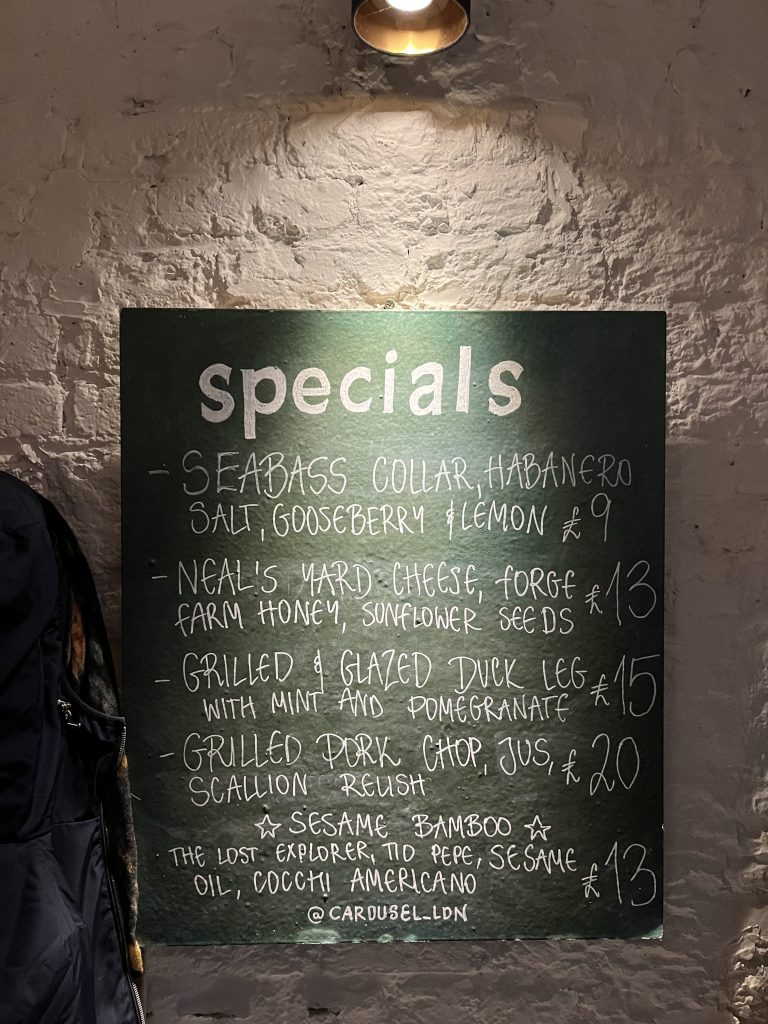 specials
- SEABASS COLLAR, HABANERO
SALT, GOOSEBERRY & LEMON £9
- NEAL'S YARD CHEESE, FORGE
FARM HONEY, SUNFLOWER SEEDS £13
- GRILLED & GLAZED DUCK LEG
WITH MINT AND POMEGRANATE £15
- GRILLED PORK CHOP, JUS,
SCALLION RELISH £20
☆ SESAME BAMBOO ☆
THE LOST EXPLORER, TIO PEPE, SESAME
OIL, COCCHI AMERICANO £13
@CAROUSEL_LDN